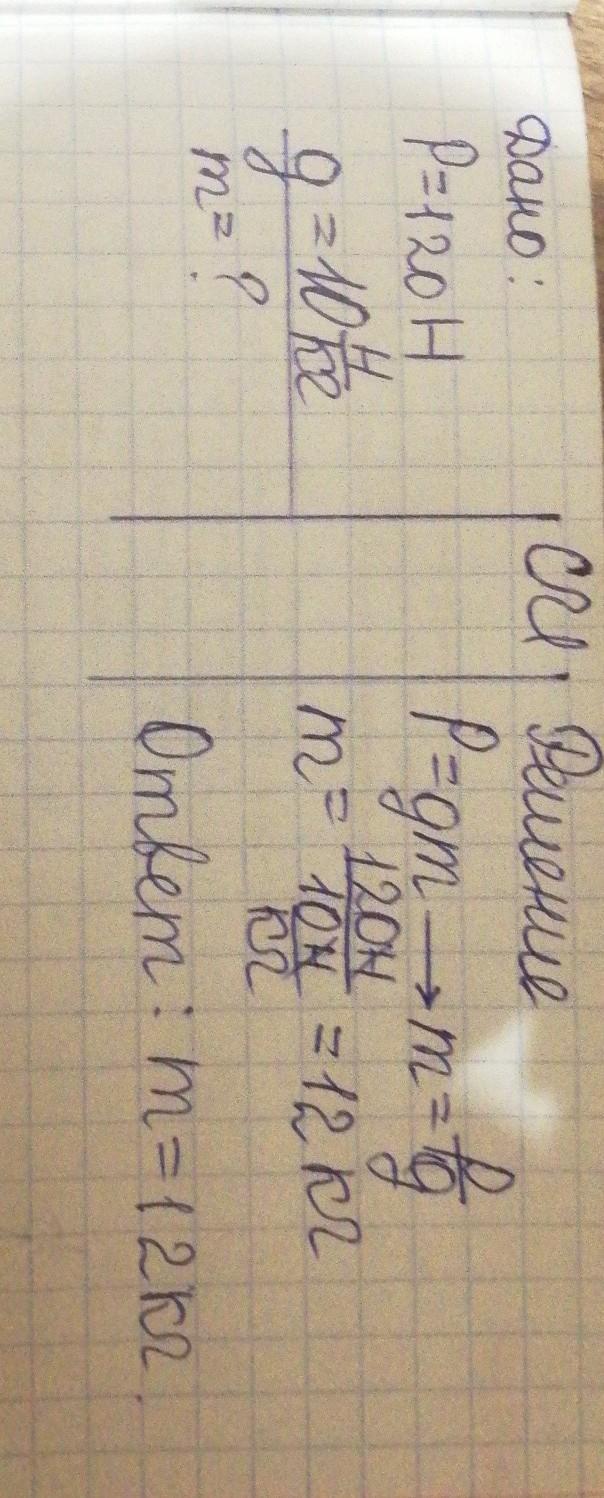 Дано:
P=120Н
g=10 Н/кг
m=?
СИ
Решение
P=gm → m=P/g
m=120Н/10Н/кг=12кг
Ответ: m=12кг.